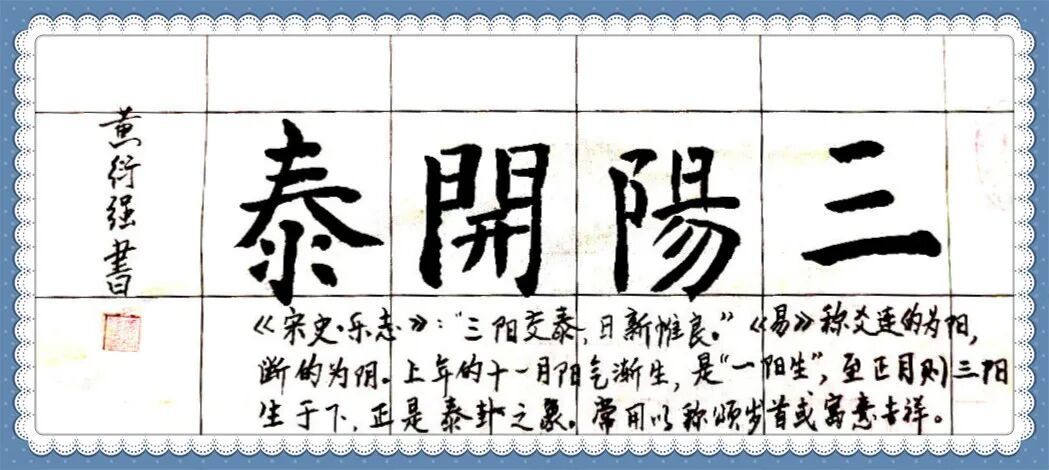 三陽開泰
黄衍强書
《宋史·乐志》:"三阳交泰,日新惟良。"《易》称爻连的为阳,
断的为阴。上年的十一月阳气渐生,是"一阳生",至正月则三阳
生于下,正是泰卦之象。常用以称颂岁首或寓意吉祥。